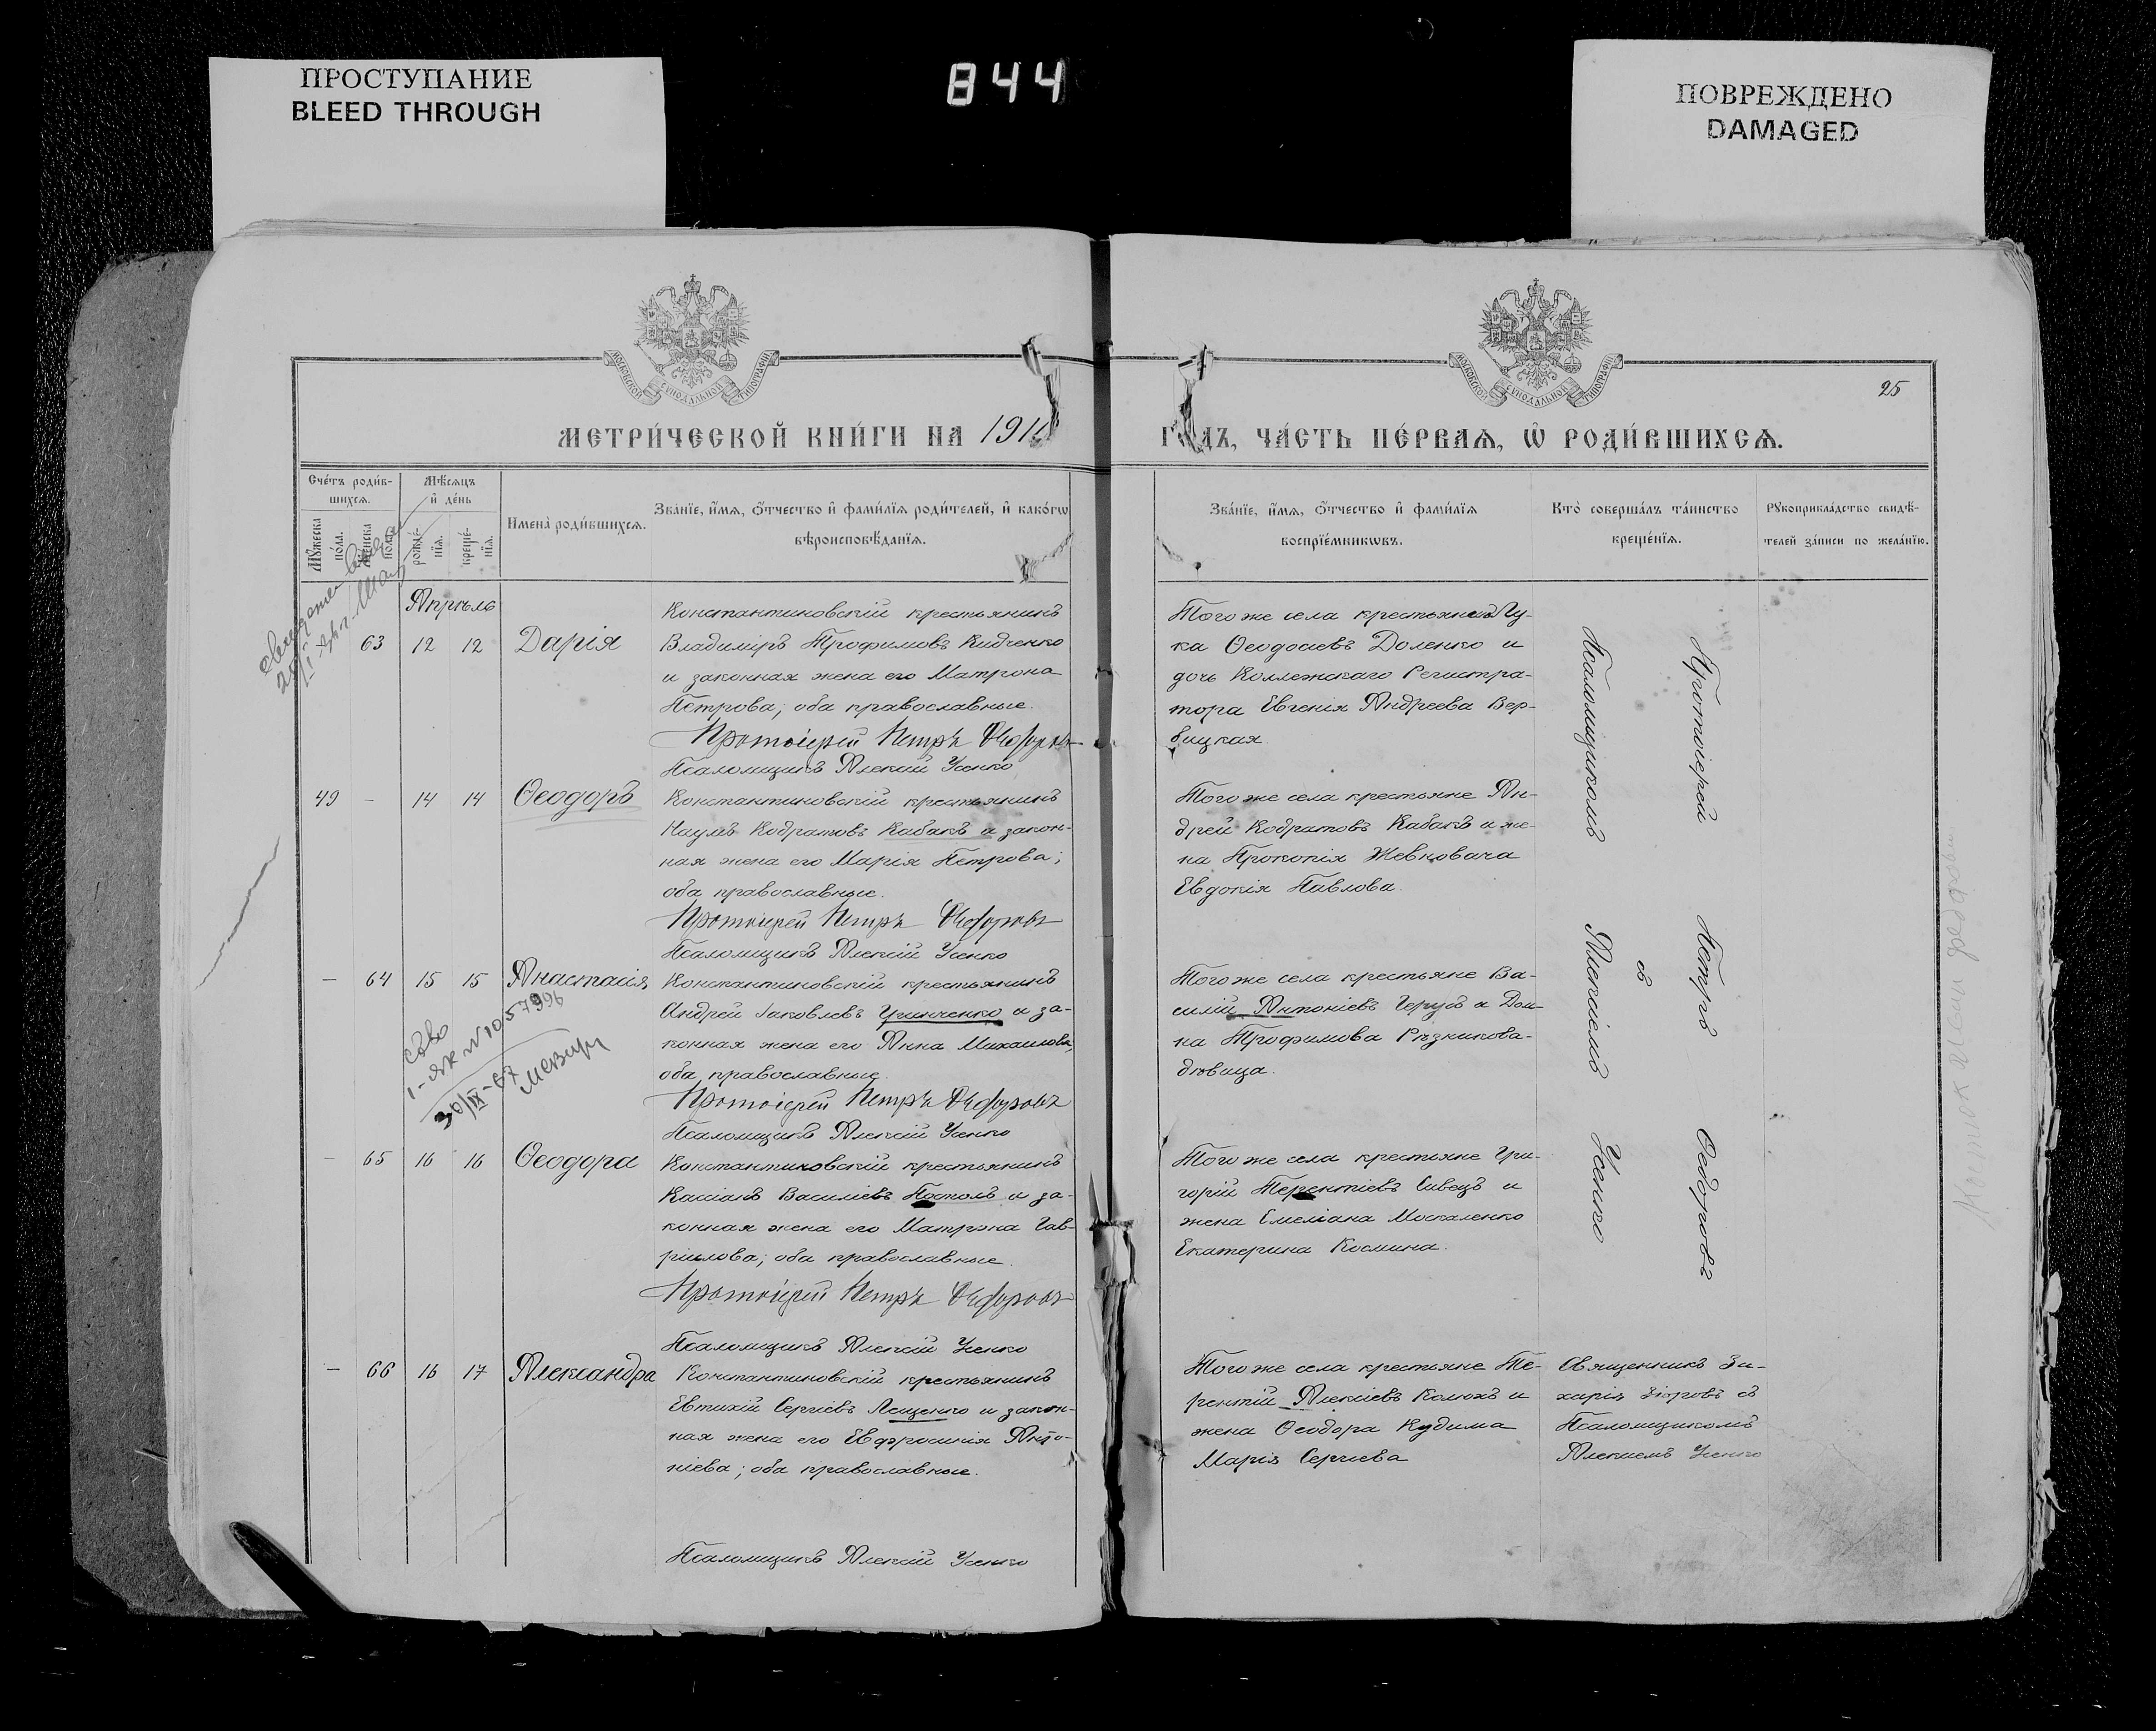 ПРОСТУПАНИЕ
BLEED THROUGH
844
ПОВРЕЖДЕНО
DAMAGED
МОСКОВСКОЙ СѴНОДАЛЬНОЙ ТИПОГРАФІИ
МОСКОВСКОЙ СѴНОДАЛЬНОЙ ТИПОГРАФІИ
25
МЕТРИ́ЧЕСКОЙ КНИ́ГИ НА 191
ГОДЪ, ЧА́СТЬ ПЕ́РВАѦ, Ѡ҆ РОДИ́ВШИХСѦ.
Сче́тъ роди́в-
шихсѧ.
Мꙋ́жеска
по́ла.
Же́нска
по́ла.
Мѣ́сѧцъ
и҆ де́нь
рожде́-
нїѧ.
креще́-
нїѧ.
И҆мена̀ роди́вшихсѧ.
Зва́нїе, и҆́мѧ, ѻ҆́тчество и҆ фами́лїѧ роди́телей, и҆ како́гѡ
вѣроисповѣ́данїѧ.
Зва́нїе, и҆́мѧ, ѻ҆́тчество и҆ фами́лїѧ
воспрїе́мникѡвъ.
Кто̀ соверша́лъ та́инство
креще́нїѧ.
Рꙋкоприкла́дство свидѣ́-
телей за́писи по жела́нїю.
Апрѣль
63 12 12 Дарія
Константиновскій крестьянинъ
Владиміръ Трофимовъ Кидченко
и законная жена его Матрона
Петрова; оба православные.
Протоіерей Петръ Ѳедоровъ
Псаломщикъ Алексій Усенко
Того же села крестьянинъ Лу-
ка Ѳеодосіевъ Доленко и
дочь Коллежскаго Регистра-
тора Евгенія Андреева Вер-
бицкая.
49 - 14 14 Ѳеодоръ
Константиновскій крестьянинъ
Наумъ Кодратовъ Кабакъ и закон-
ная жена его Марія Петрова;
оба православные.
Протоіерей Петръ Ѳедоровъ
Псаломщикъ Алексій Усенко
Того же села крестьяне Ан-
дрей Кодратовъ Кабакъ и же-
на Прокопія Жевковача
Евдокія Павлова.
- 64 15 15 Анастасія
Константиновскій крестьянинъ
Андрей Іаковлевъ Гринченко и за-
конная жена его Анна Михаилова,
оба православные.
Протоіерей Петръ Ѳедоровъ
Псаломщикъ Алексій Усенко
Того же села крестьяне Ва-
силій Антоніевъ Герусъ и Дом-
на Трофимова Рѣзникова-
дѣвица.
св-во
1-ЯК № 1057996
30/IX-67
- 65 16 16 Ѳеодора
Константиновскій крестьянинъ
Кассіанъ Василіевъ Постолъ и за-
конная жена его Матрона Гав-
ріилова; оба православные.
Протоіерей Петръ Ѳедоровъ
Псаломщикъ Алексій Усенко
Того же села крестьяне Гри-
горій Терентіевъ Сивецъ и
жена Емеліана Москаленко
Екатерина Космина.
Протоіерей Петръ Ѳедоровъ
съ
Псаломщикомъ Алексіемъ Усенко
- 66 16 17 Александра
Константиновскій крестьянинъ
Евтихій Сергіевъ Лещенко и закон-
ная жена его Евфросинія Анто-
ніева; оба православные.
Псаломщикъ Алексій Усенко
Того же села крестьяне Те-
рентій Алексіевъ Колюхъ и
жена Ѳеодора Кудима
Марія Сергіева
Священникъ За-
харія съ
Псаломщикомъ
Алексіемъ Усенко